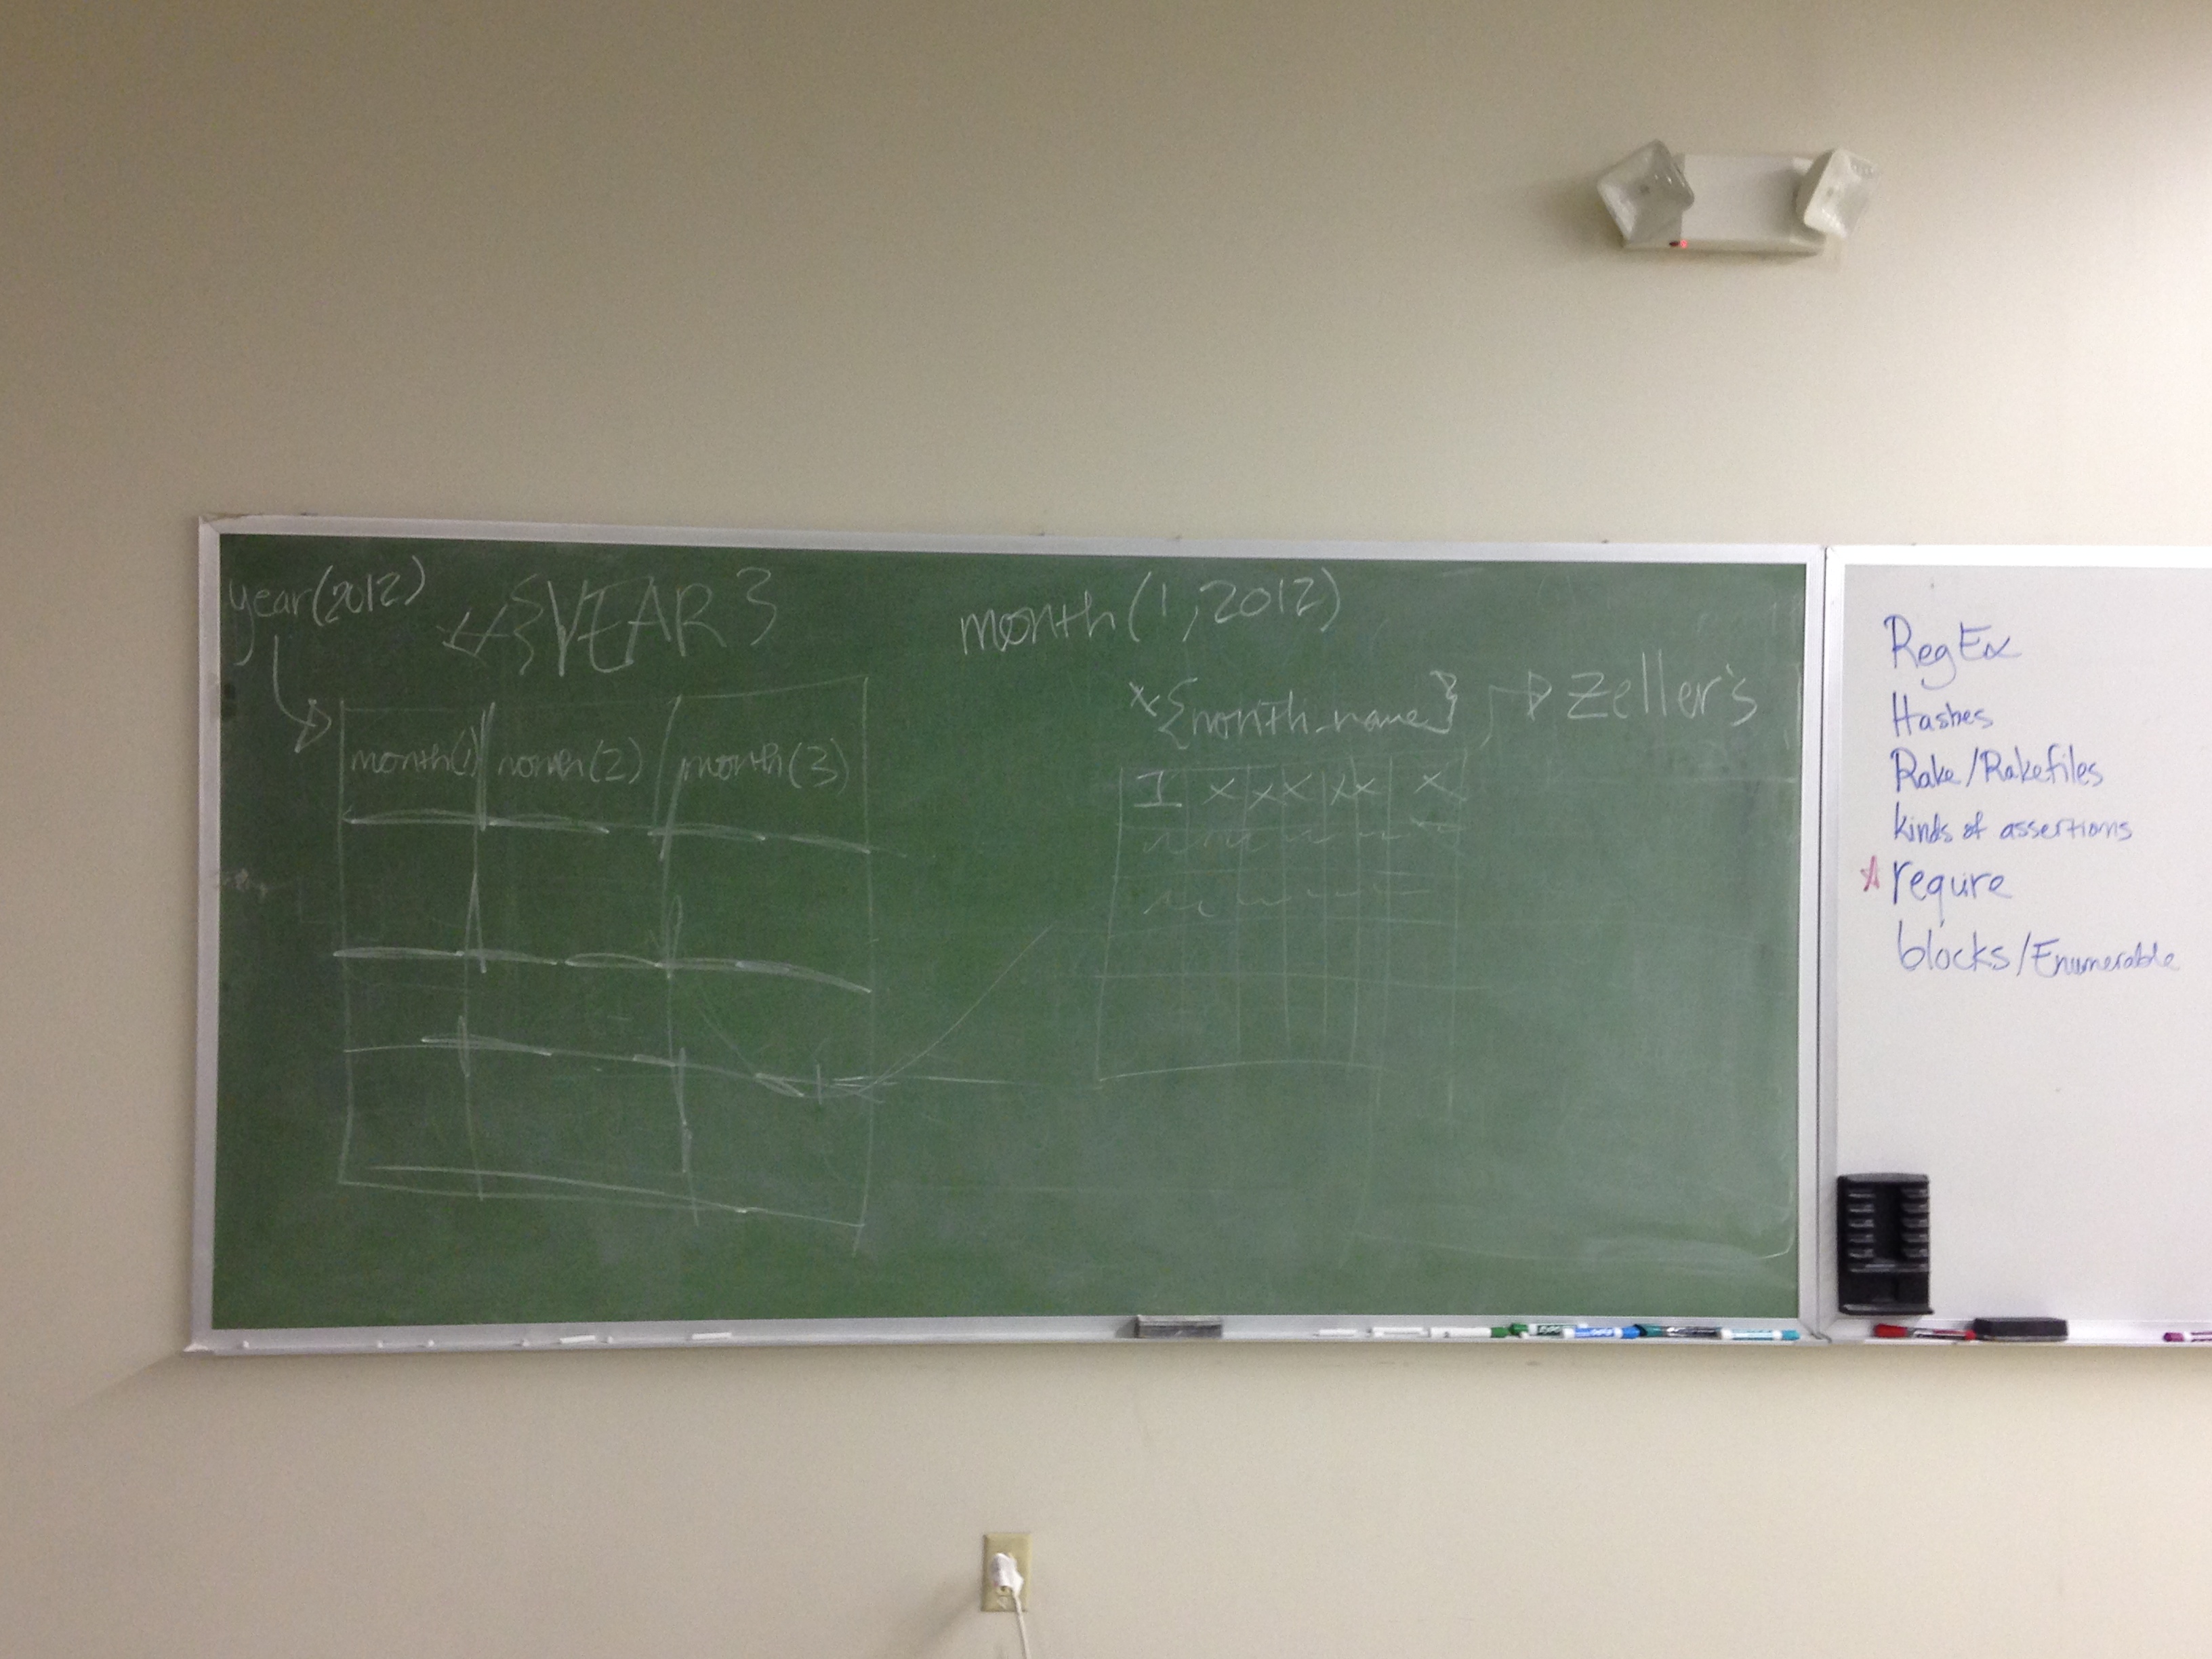 year(2012)
#{YEAR}
month(1)
month(2)
month(3)
month(1,2012)
#{month_name}
Zeller's
1 x xx xx x
RegEx
Hashes
Rake/Rakefiles
kinds of assertions
requre
blocks/Enumerable